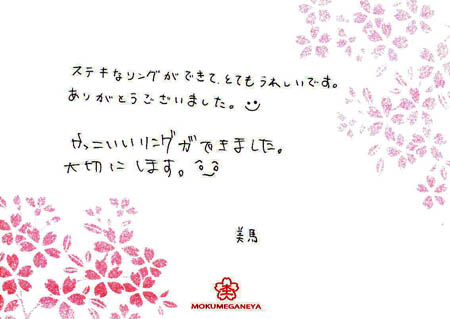 ステキなリングができて、とてもうれしいです。
ありがとうございました。
かっこいいリングができました。
大切にします。
美馬
MOKUMEGANEYA